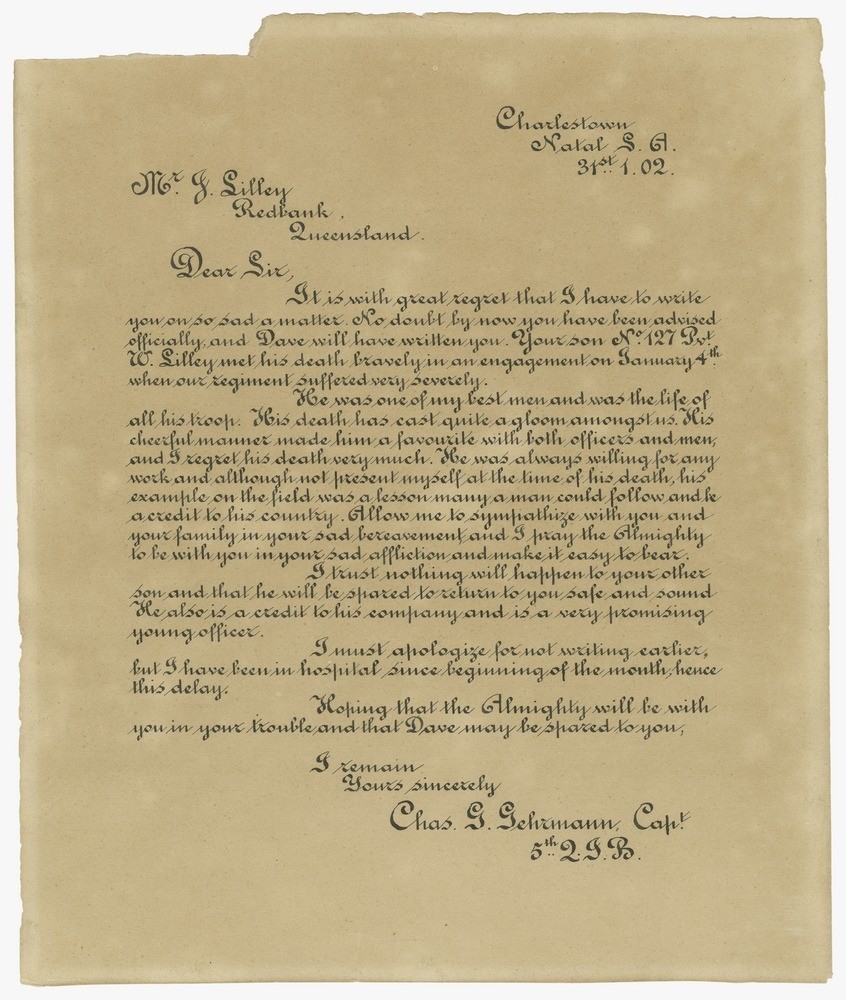 Charlestown
Natal S. A.
31st 1. 02.
Mr. J. Lilley
Redbank,
Queensland.
Dear Sir,
It is with great regret that I have to write
you on so sad a matter. No doubt by now you have been advised
officially, and Dave will have written you. Your son No. 127 Pvt
W. Lilley met his death bravely in an engagement on January 4th
when our regiment suffered very severely.
He was one of my best men and was the life of
all his troop. His death has cast quite a gloom amongst us. His
cheerful manner made him a favourite with both officers and men,
and I regret his death very much. He was always willing for any
work and although not present myself at the time of his death, his
example on the field was a lesson many a man could follow and be
a credit to his country. Allow me to sympathize with you and
your family in your sad bereavement and I pray the Almighty
to be with you in your sad affliction and make it easy to bear.
I trust nothing will happen to your other
son and that he will be spared to return to you safe and sound
He also is a credit to his company and is a very promising
young officer.
I must apologize for not writing earlier,
but I have been in hospital since beginning of the month, hence
this delay.
Hoping that the Almighty will be with
you in your trouble and that Dave may be spared to you,
I remain
Yours sincerely
Chas. G. Gehrmann, Capt.
5th Q. I. B.